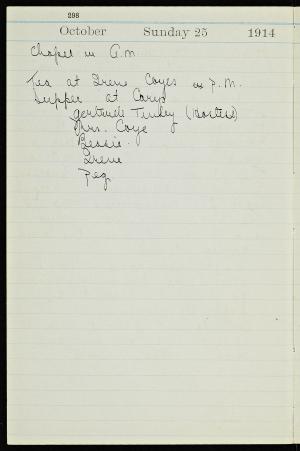 298
October Sunday 25 1914
Chapel in A.M.
Tea at Irene Coyes in P.M.
Supper at Carys
Gertrude Tinley (Hostess)
Mrs. Coye
Bessie
Irene
Peg